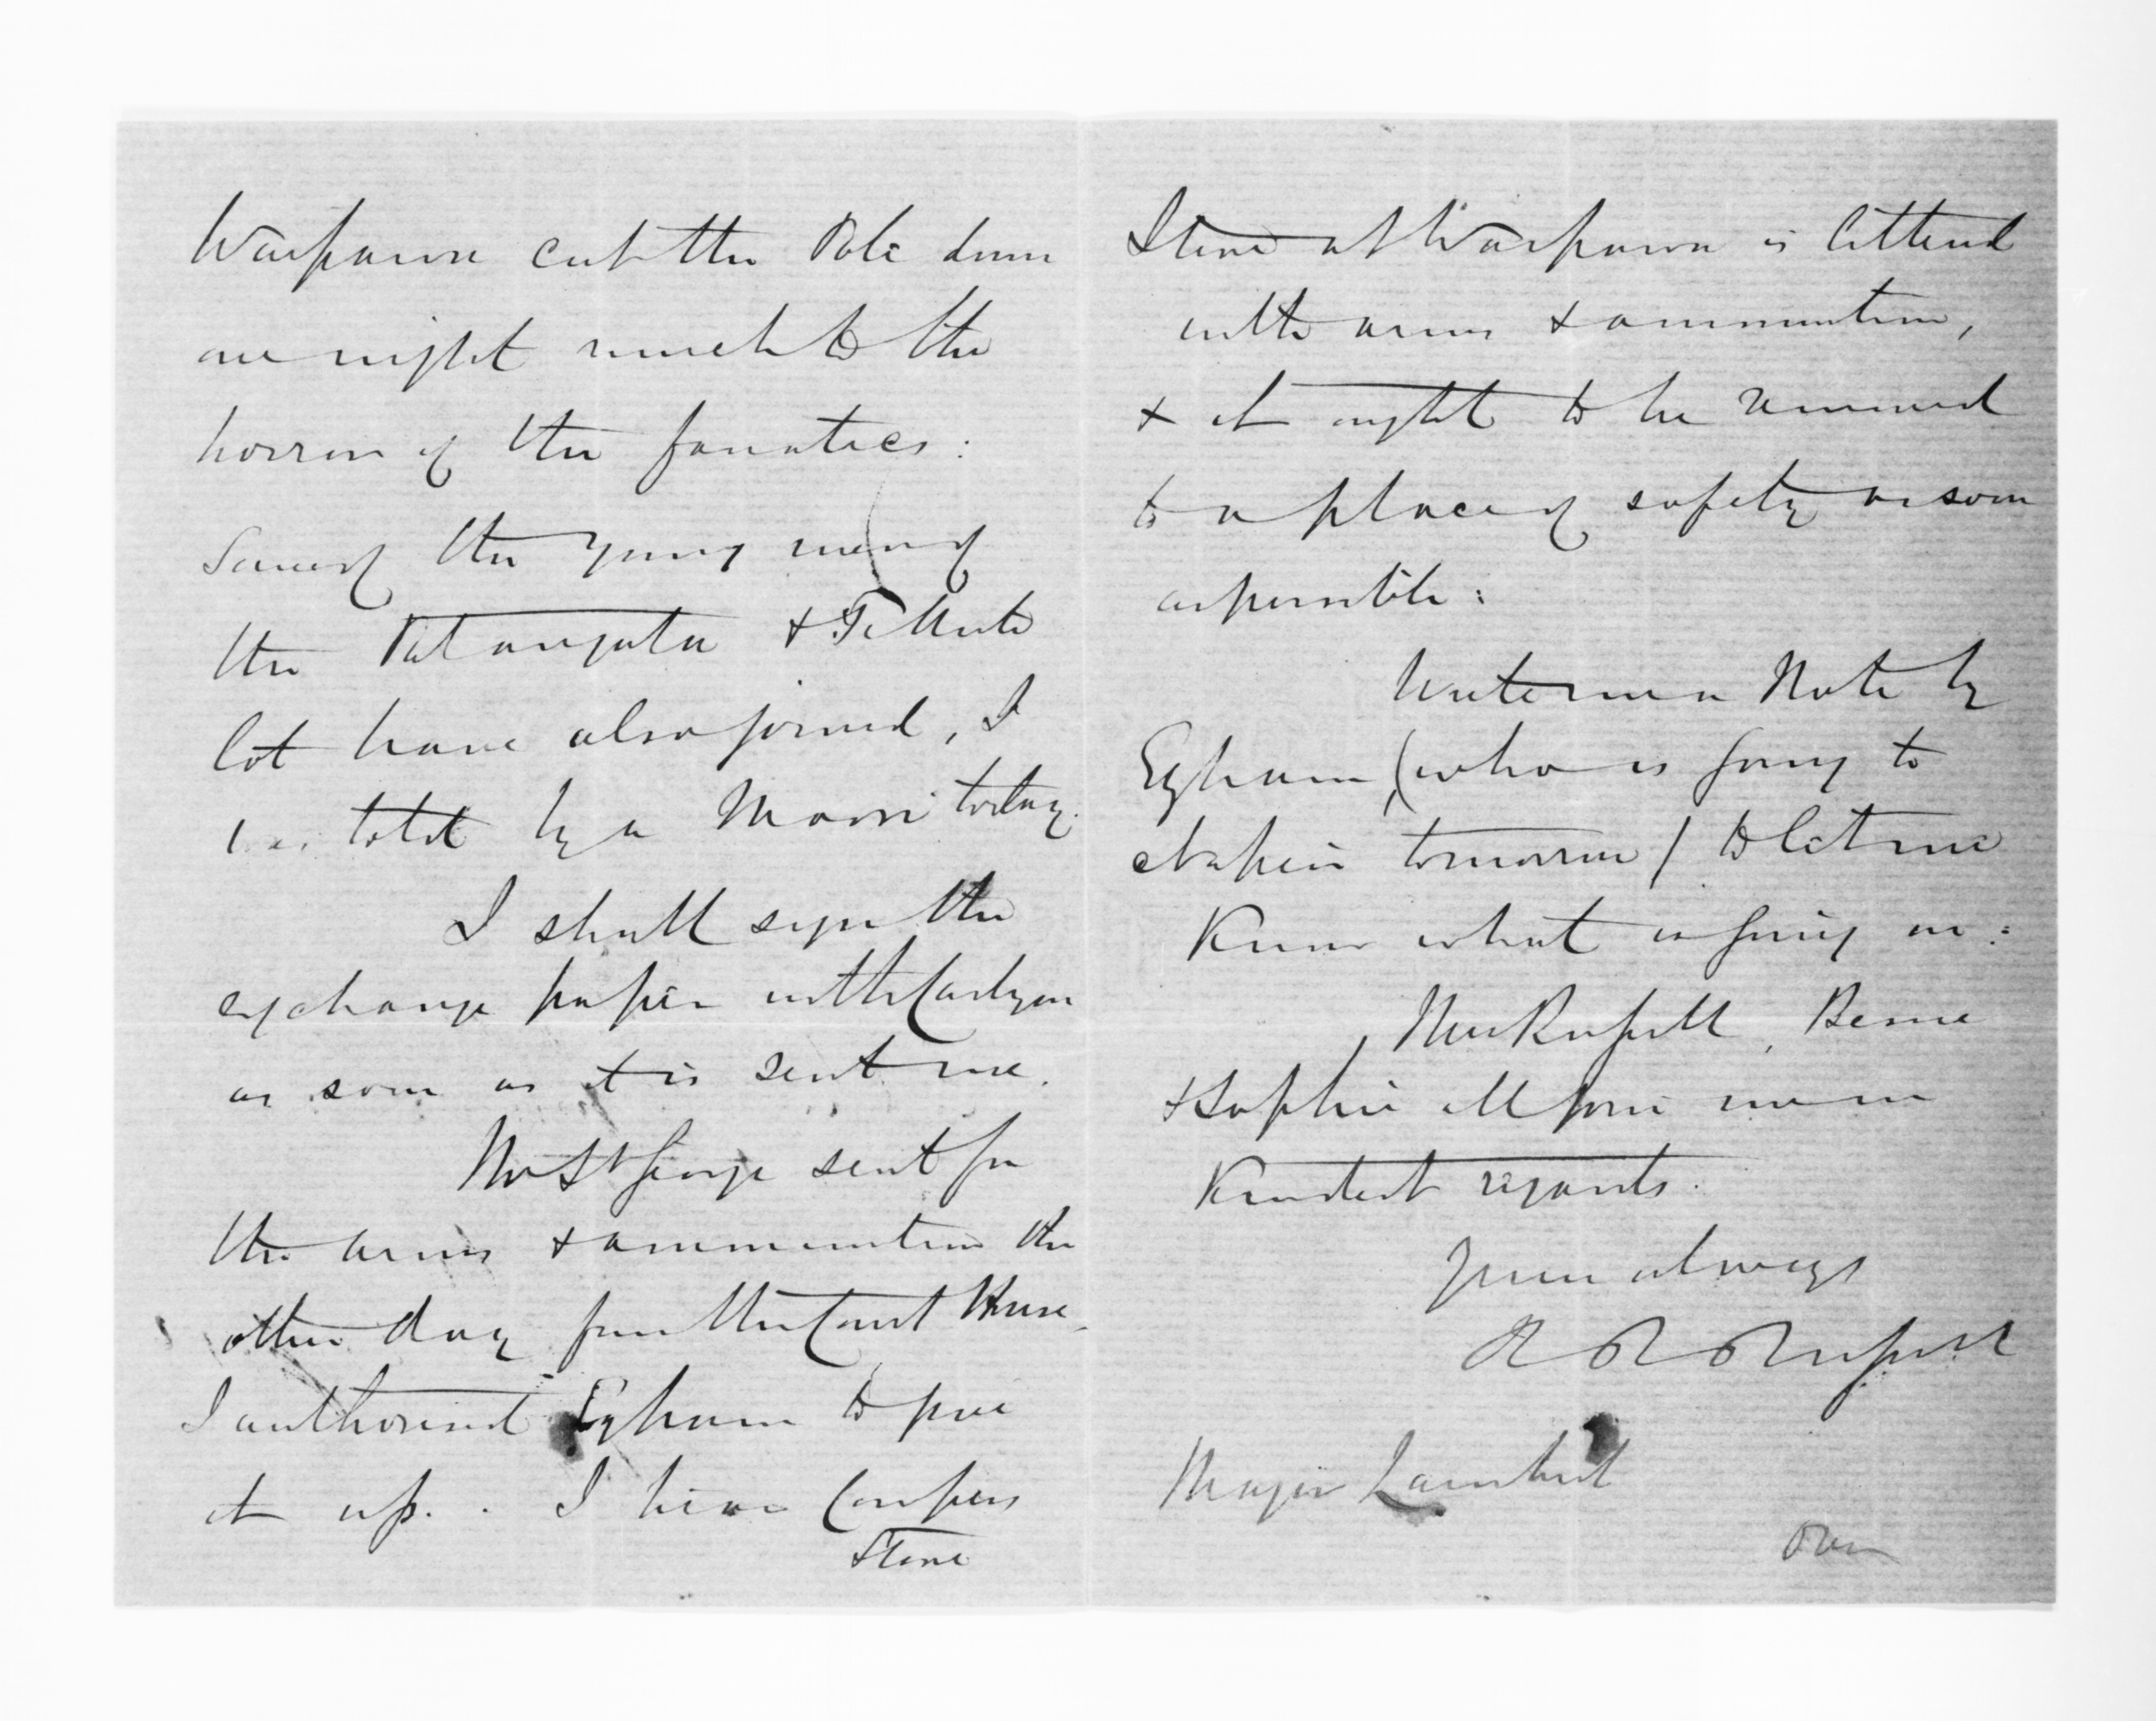 Waipawa cut the Pole down
one night much to the
horror of the fanatics:
Some of the young men of
the Patangata & Te Aute
lot have also joined, I
was told by a Maori today.
I shall sign the
exchange paper with Cardigan
as soon as it is sent me.
Mr St George sent for
the arms & ammunition the
other day from the Court House
I authorised Egham to give
it up. . I hear Coupers
Store
Store at Waipawa is littered
with arms & ammunition,
& it ought to be removed
to a place of safety as soon
as possible:
Write me a Note by
Egham, (who is going to
Napier tomorrow) to let me
Know what is going on:
Mrs Russell,
& Sophie all join me in
Kindest regards.
Yours always
Russell
Major Lambert
Over